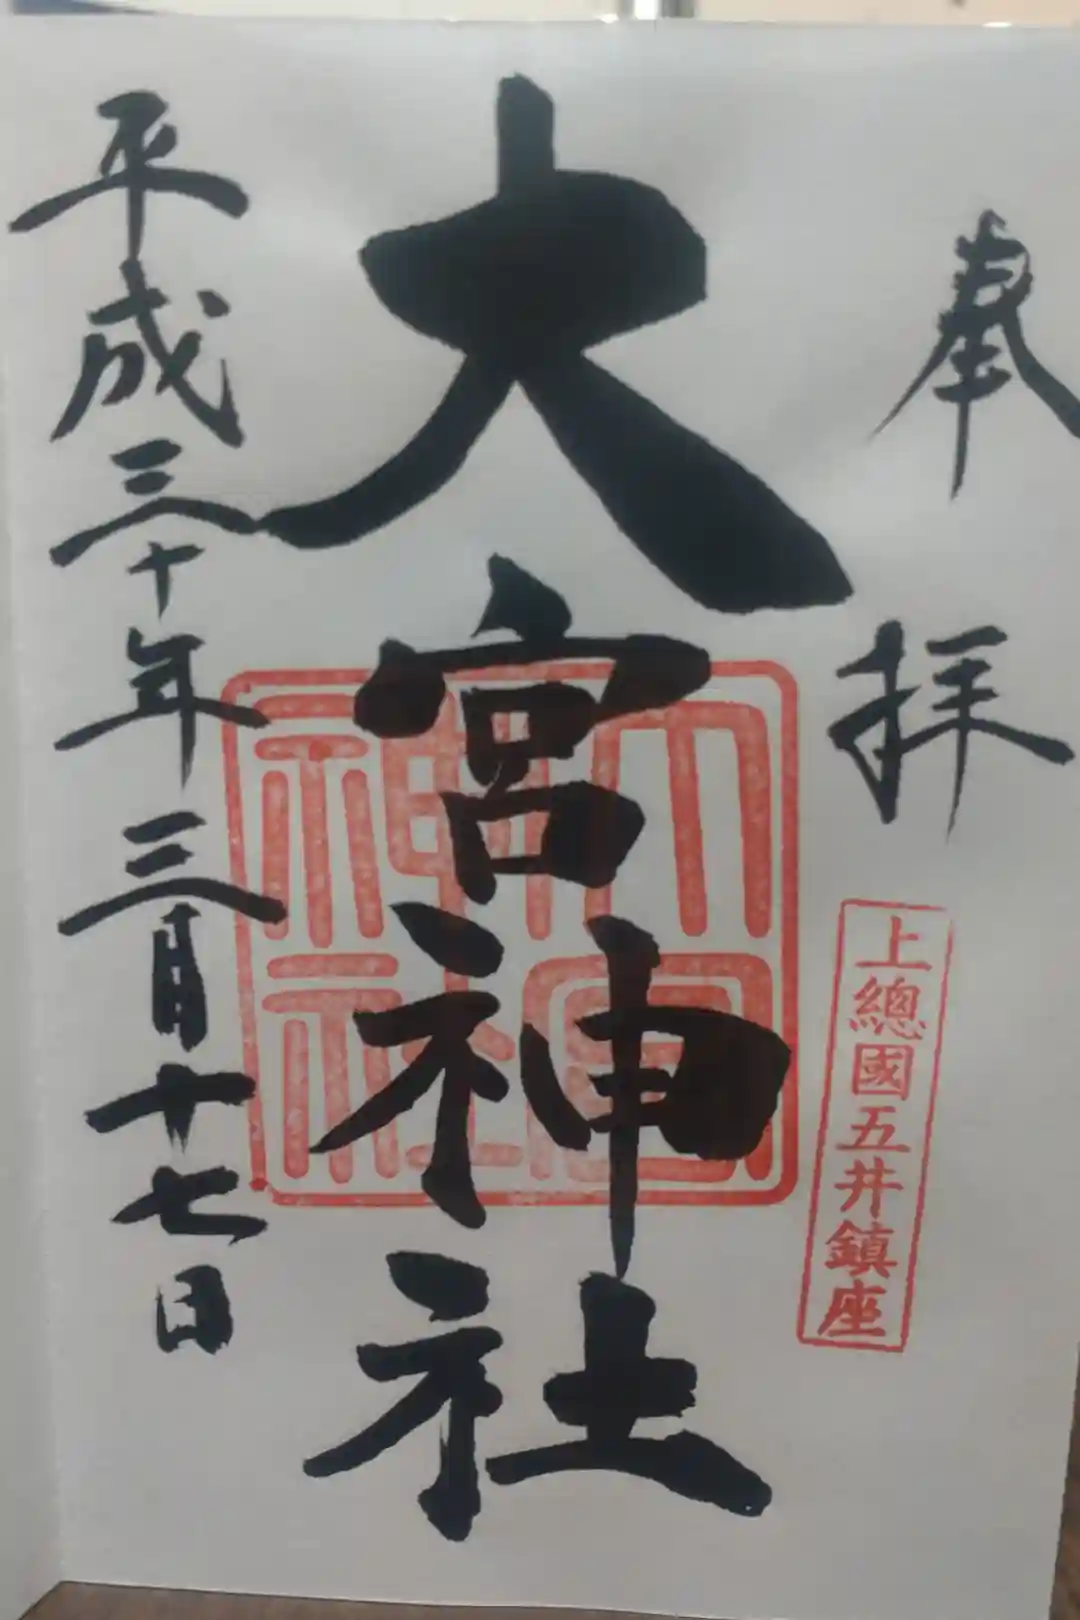 奉拝
上總國五井鎮座
大宮神社
大宮
神社
平成三十年三月十七日